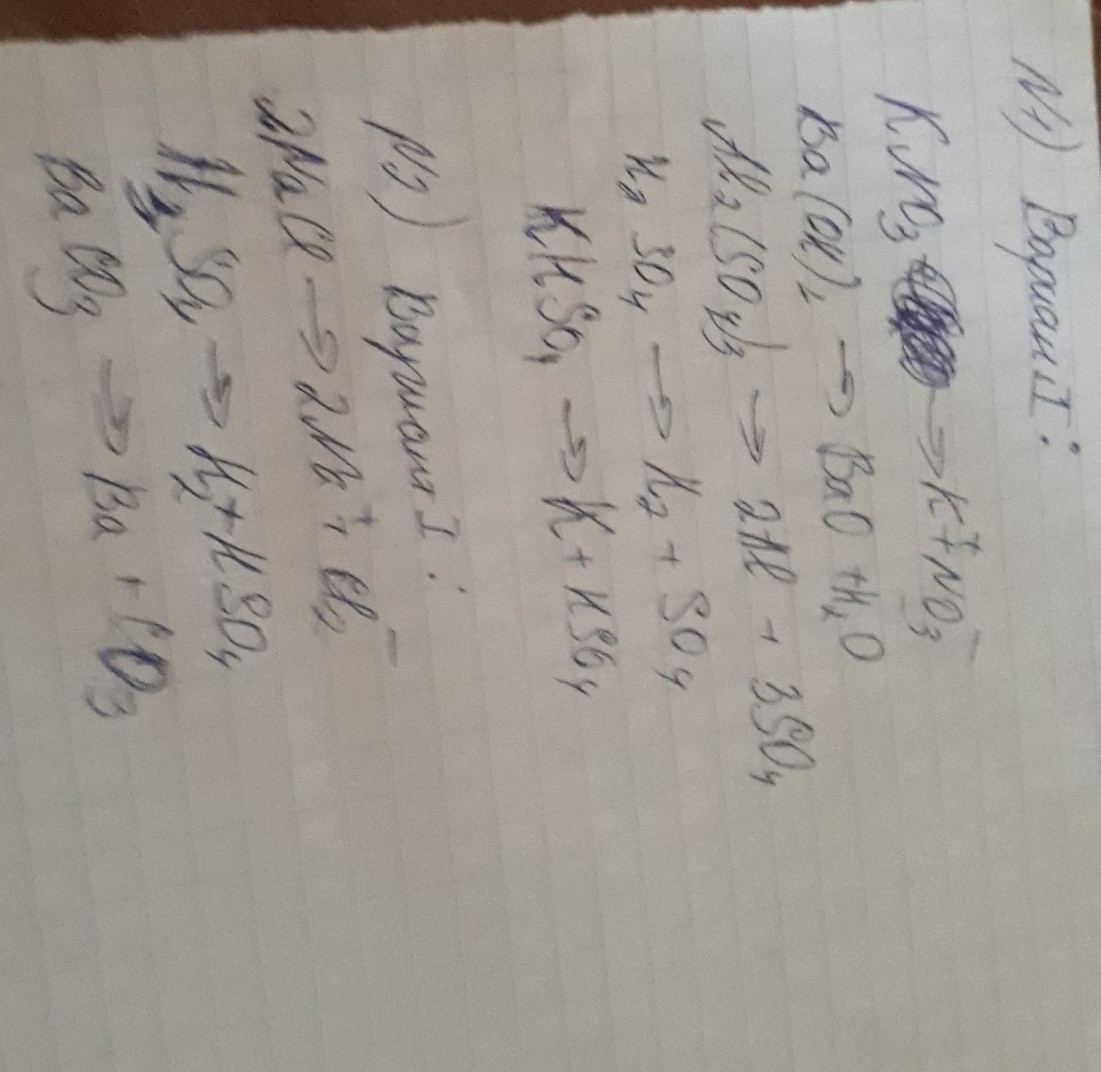 N1) Вариант I:
KNO₃ → K⁺ + NO₃⁻
Ba(OH)₂ → BaO + H₂O
Al₂(SO₄)₃ → 2Al + 3SO₄
H₂SO₄ → H₂ + SO₄
KHSO₄ → K + HSO₄
N2) Вариант I:
2NaCl → 2Na⁺ + Cl₂⁻
H₂SO₄ → H₂ + HSO₄
BaCO₃ → Ba + CO₃